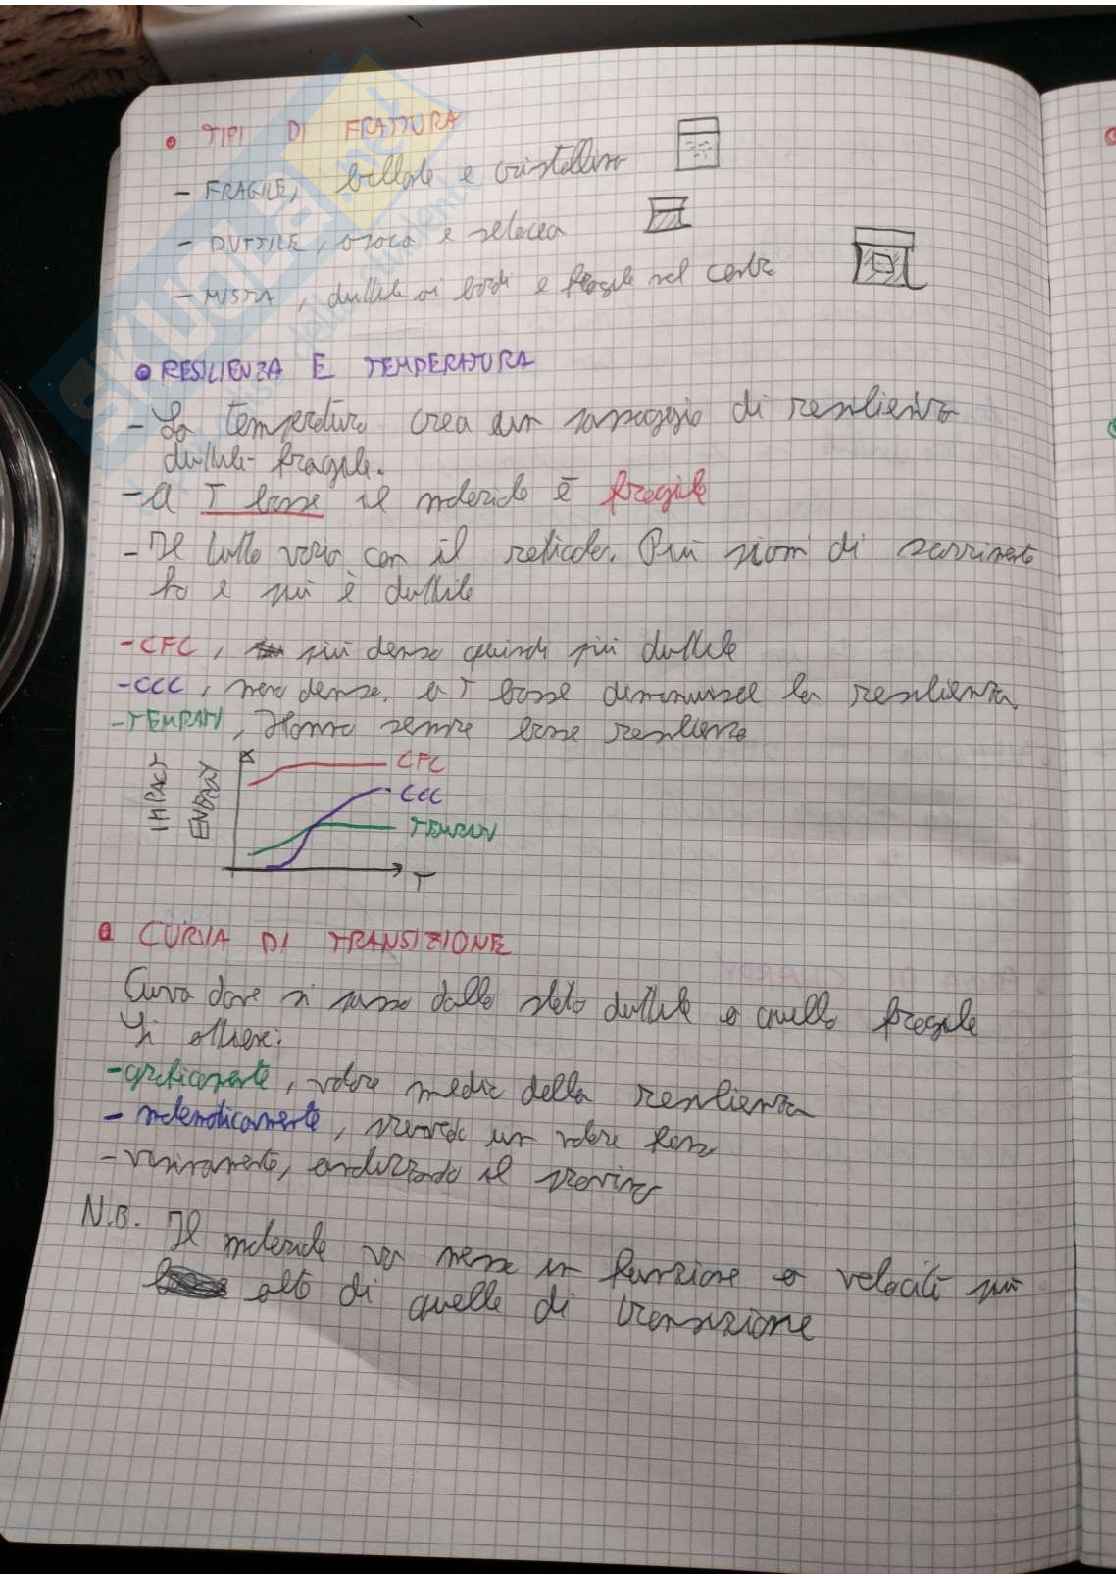 TIPI DI FRATTURA
- FRAGILE, brillate e cristallina
- DUTTILE, opaca e setacea
- MISTA, duttile ai bordi e fragile nel centro
RESILIENZA E TEMPERATURA
- La temperatura crea un passaggio di resilienza
duttile-fragile.
- A T basse il materiale è fragile
- Il tutto varia con il reticolo. Più piani di scorrimento
e più è duttile
- CFC, più denso quindi più duttile
- CCC, meno denso, a T basse diminuisce la resilienza
- TEMPRATI, Hanno sempre bassa resilienza
IMPACT ENERGY
CFC
CCC
TEMPRATI
T
CURVA DI TRANSIZIONE
Curva dove si passa dallo stato duttile a quello fragile
Si ottiene:
- graficamente, valore medio della resilienza
- matematicamente, un valore fisso
- visivamente, analizzando il provino
N.B. Il materiale va messo in funzione a velocità più
alte di quelle di transizione